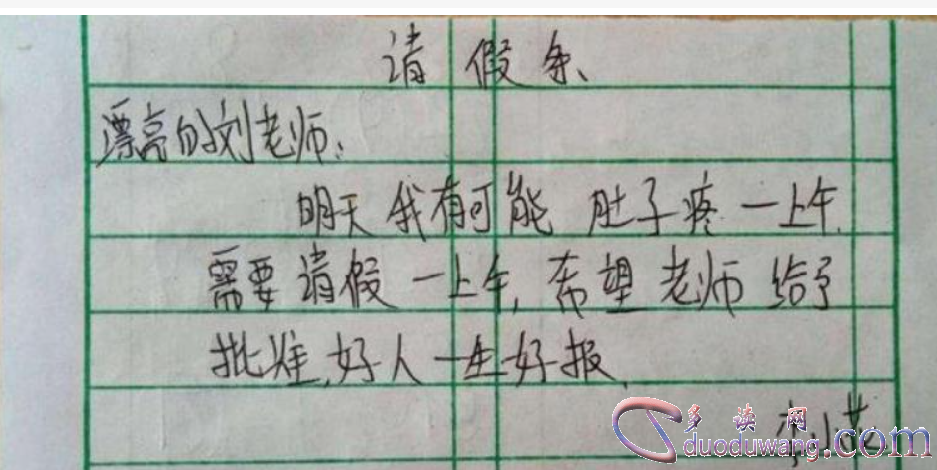 请假条
漂亮的刘老师:
明天我有可能肚子疼一上午
需要请假一上午,希望老师给予
批准,好人一生好报
李小花
多读网
duoduwang.com